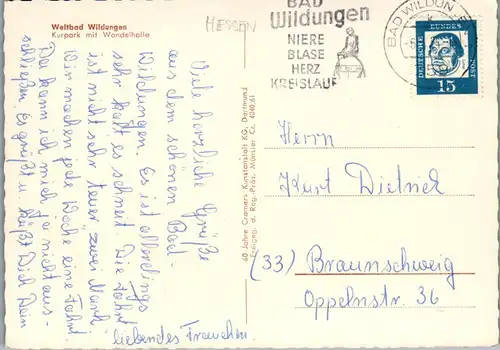 Weltbad Wildungen
Kurpark mit Wandelhalle
HESSEN
BAD
Wildungen
NIERE
BLASE
HERZ
KREISLAUF
BAD WILDUN
DEUTSCHE
BUNDES
POST
15
Viele herzliche Grüße
aus dem schönen Bad-
Wildungen. Es ist allerdings
sehr kalt es schneit. Die Fahrt
ist nicht sehr teuer „zwei Mark“
Wir machen jede Woche eine Fahrt.
Da kann ich mich ja nicht aus-
schließen. Es grüßt u. küßt Dich Dein
liebendes Frauchen.
60 Jahre Cramers Kunstanstalt KG, Dortmund
Freigeg. d. Reg.-Präs. Münster Cr. 4040/61
Herrn
Kurt Dietrich
(33) Braunschweig
Oppelnstr. 36